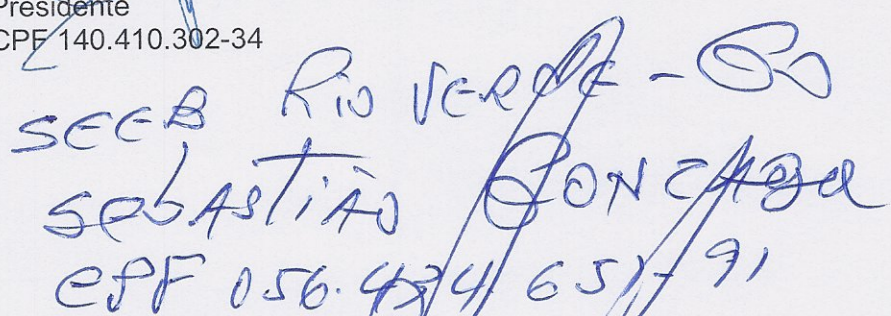 Presidente
CPF 140.410.302-34
SEEB Rio VERDE - GO
SEbASTiÃO GONZAGA
CPF 056.424 651-91